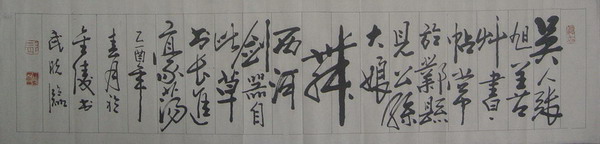 吴人張
旭善
艸書
帖常
於鄴縣
見公孫
大娘
舞
西河
劍器自
此草
書長進
豪蕩
乙酉年
春月於
金陵書